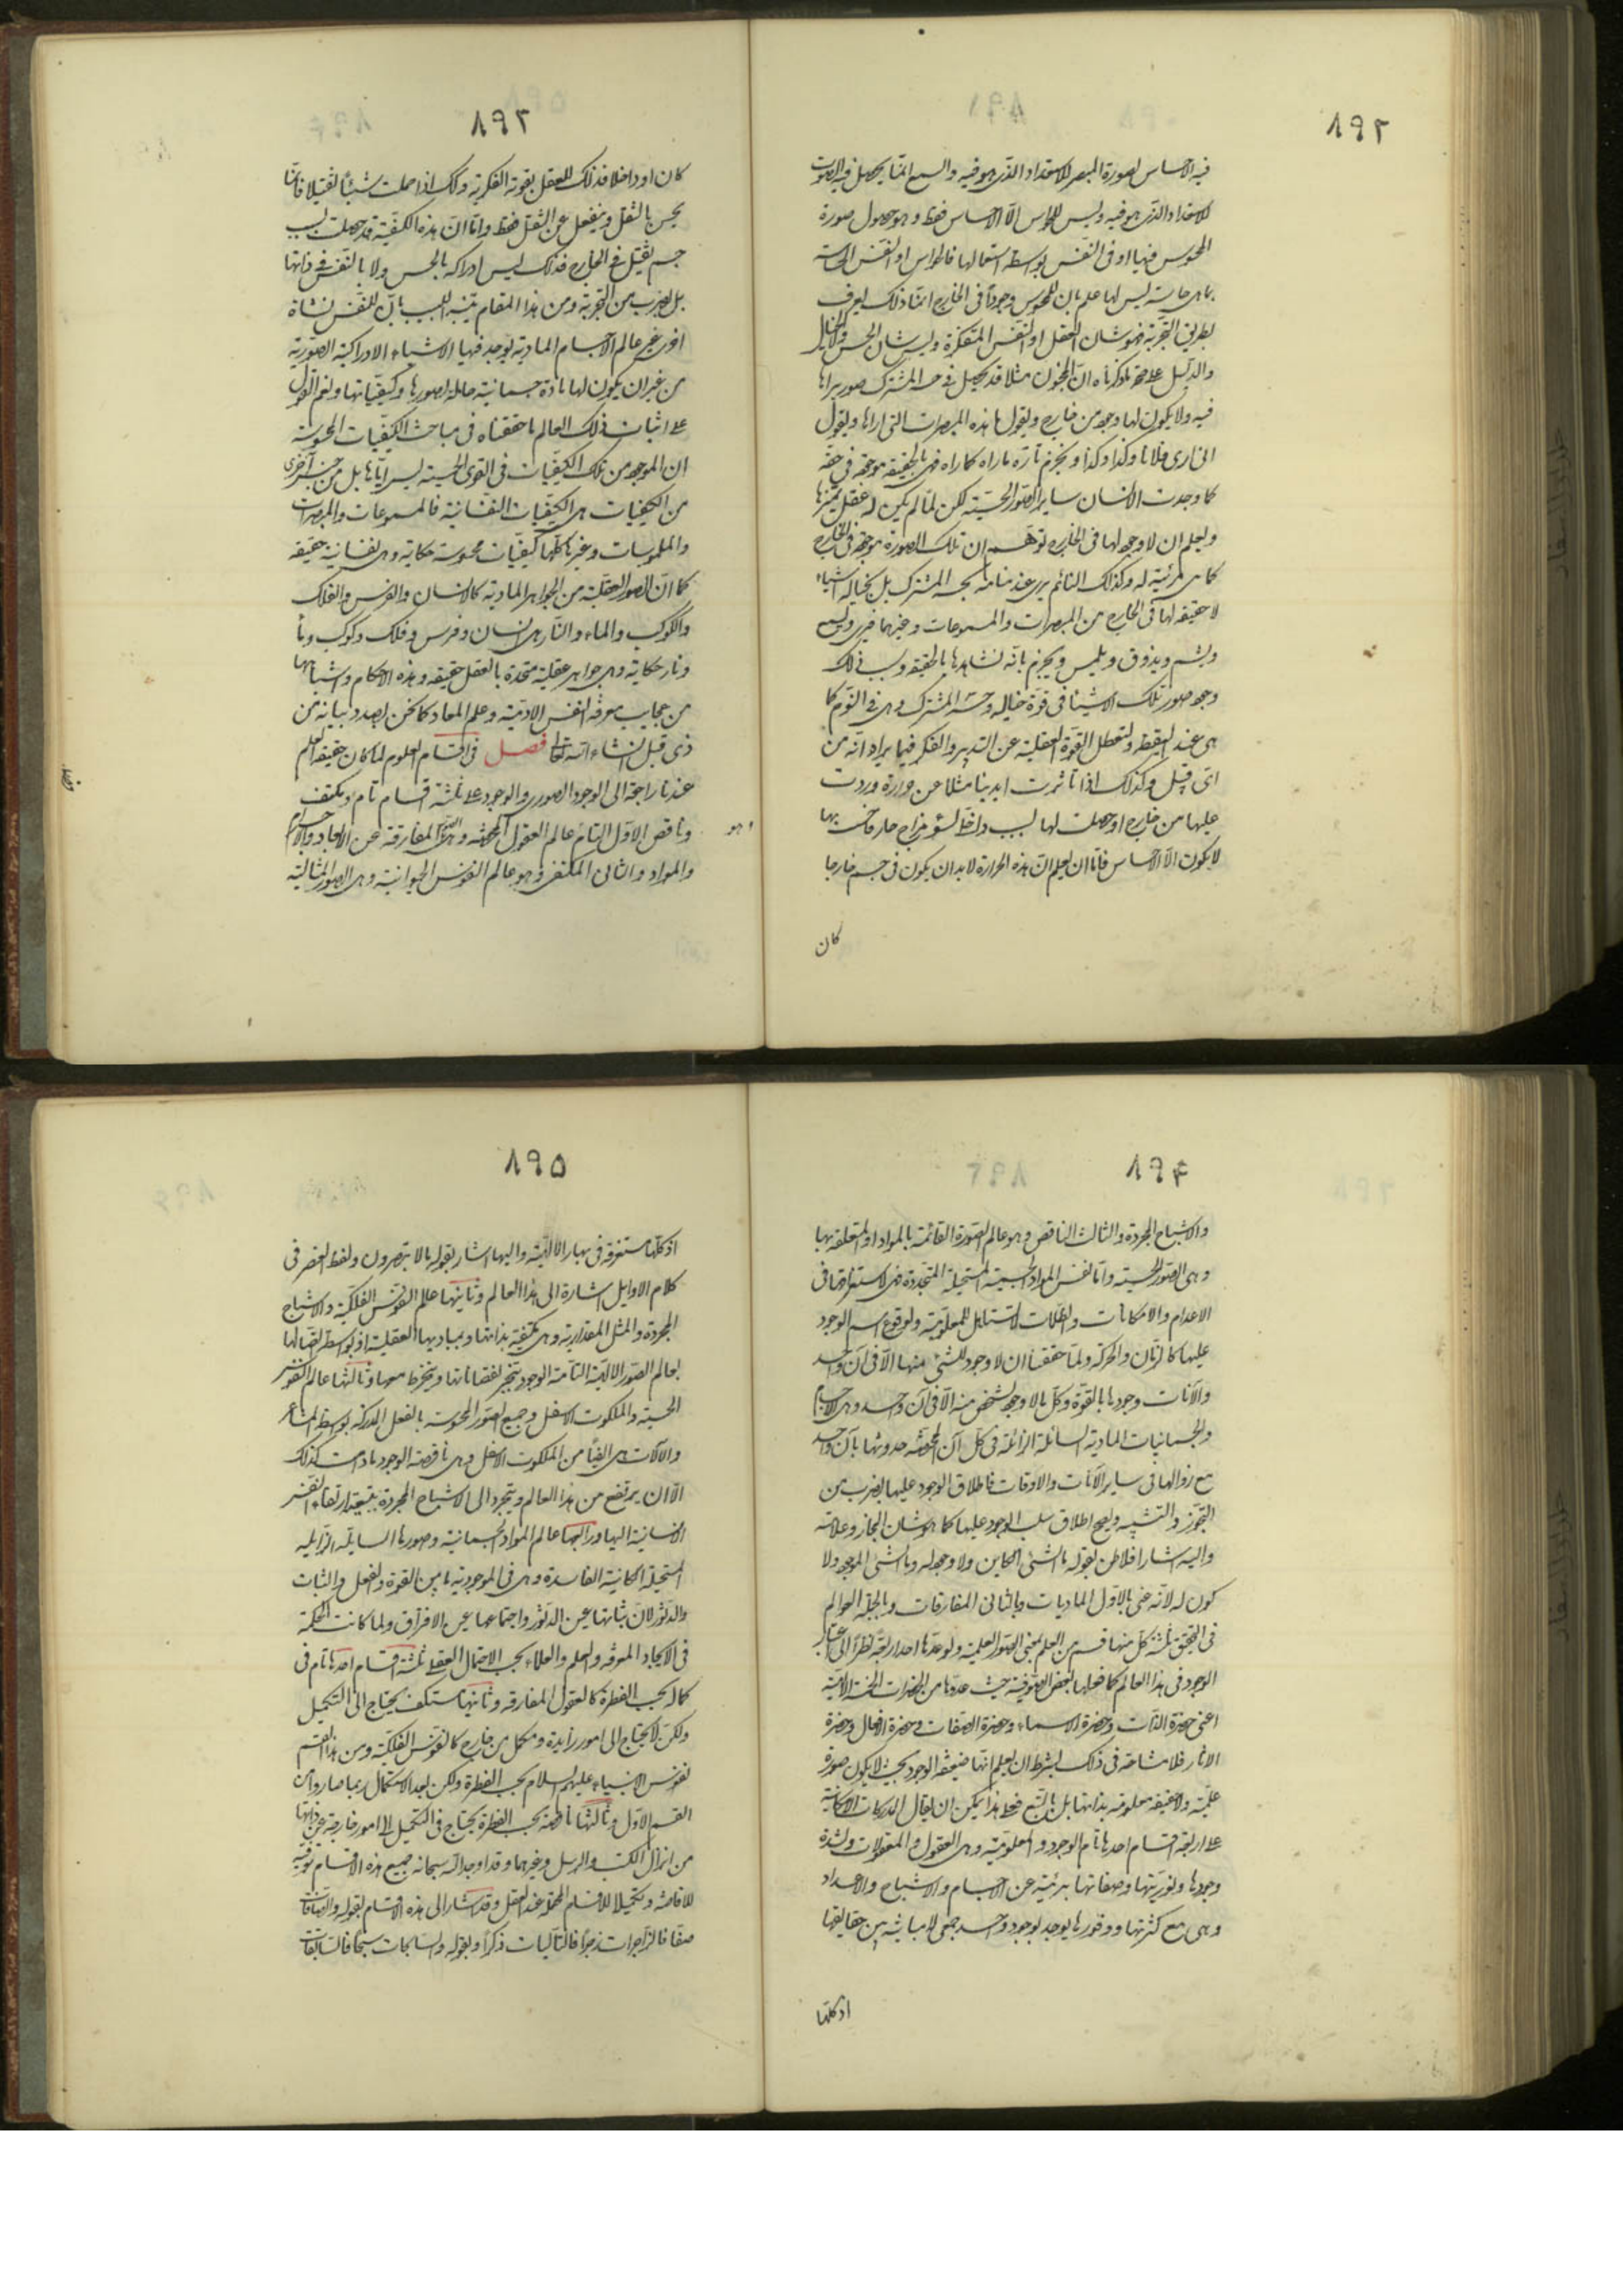 ٨٩٢
فيه الاحساس لصورة المبصر للاستعداد الذى هو فيه والسمع انما يحصل فيه الصوت
للاستعداد الذى هو فيه وليس للحواس الا الاحساس فقط وهو حصول صورة
المحسوس فيها او فى النفس بواسطة استعمالها فالحواس او النفس الحاسة
بما هى حاسة ليس لها علم بان للمحسوس وجودا فى الخارج انما ذلك يعرف
بطريق التجربة فهو شان العقل او النفس المتفكرة وليس شان الحس ولا الخيال
والدليل على صحة ما ذكرناه ان المجنون مثلا قد يحصل فى حسه المشترك صور يراها
فيه ولا يكون لها وجود من خارج ويقول ما هذه المبصرات التى اراها ويقول
انى ارى فلانا وكذا وكذا ويجزم بان ما راه كما راه فهى بالحقيقة موجودة فى حقه
كما وجدت للانسان ساير الصور الحسية لكن لما لم يكن له عقل يميزها
ويعلم ان لا وجود لها فى الخارج توهم ان تلك الصورة موجودة فى الخارج
كما هى مرئية له وكذلك النائم يرى عند منامه بحسه المشترك بل بخياله اشياء
لا حقيقة لها فى الخارج من المبصرات والمسموعات وغيرهما فيرى ويسمع
ويشم ويذوق ويلمس ويجزم بانه يشاهدها بالحقيقة وسبب ذلك
وجود صور تلك الاشياء فى قوة خياله وحسه المشترك وهى فى النوم كما
هى عند اليقظة ولتعطل القوة العقلية عن التدبير والفكر فيما يراه انه من
اى قبيل وكذلك اذا تاثرت ايدينا مثلا عن حرارة وردت
عليها من خارج او حصلت لها بسبب داخلى لسوء مزاج حار فاحست بها
لا يكون الا الاحساس فاما ان يعلم ان هذه الحرارة لا بد ان يكون فى جسم خارجا
كان
٨٩٣
كان او داخلا فذلك للعقل بقوته الفكرية وكذلك اذا حملت شيئا ثقيلا فانما
يحس بالثقل وينفعل عن الثقل فقط واما ان هذه الكيفية قد حصلت بسبب
جسم ثقيل فى الخارج فذلك ليس ادراكه بالحس ولا بالنفس فى ذاتها
بل بضرب من التجربة ومن هذا المقام يتنبه اللبيب بان للنفس نشاة
اخرى غير عالم الاجسام المادية يوجد فيها الاشياء الادراكية الصورية
من غير ان يكون لها مادة جسمانية حاملة لصورها وكيفياتها ونعم العون
على اثبات ذلك العالم ما حققناه فى مباحث الكيفيات المحسوسة
ان الموجود من تلك الكيفيات فى القوى الحسية ليس اياها بل من جنس آخر
من الكيفيات هى الكيفيات النفسانية فالمسموعات والمبصرات
والملموسات وغيرها كلها كيفيات محسوسة حكاية وهى نفسانية حقيقة
كما ان الصور العقلية من الجواهر المادية كالانسان والفرس والفلك
والكوكب والماء والنار هى انسان وفرس وفلك وكوكب وماء
ونار حكاية وهى جواهر عقلية متحدة بالعقل حقيقة وهذه الاحكام واشباهها
من عجايب معرفة النفس الادمية وعلم المعاد كما نحن بصدد بيانه من
ذى قبل انشاء الله تعالى فصل فى اقسام العلوم لما كان حقيقة العلم
عندنا راجعة الى الوجود الصورى والوجود على ثلثة اقسام تام ومكتف
وناقص الاول التام عالم العقول المحضة وهى الصور المفارقة عن الابعاد والاجرام
وهو
والمواد والثانى المكتفى وهو عالم النفوس الحيوانية وهى الصور المثالية
٨٩۴
والاشباح المجردة والثالث الناقص وهو عالم الصورة القائمة بالمواد او المتعلقة بها
وهى الصور الحسية واما نفس المواد الجسمية المستحيلة المتجددة فهى لاستغراقها فى
الاعدام والامكانات والظلمات لا تستاهل للمعلومية ولوقوع اسم الوجود
عليها كالزمان والحركة ولما حققنا ان لا وجود للشئ منها الا فى آن واحد
والآنات وجودها بالقوة وكل ما لا وجود لشخص منه الا فى آن واحد وهى الاجسام
والجسمانيات المادية السائلة الزائلة فى كل آن المختصة حدوثها بآن واحد
مع زوالها فى ساير الآنات والاوقات فاطلاق الوجود عليها بضرب من
التجوز والتشبيه ويصح اطلاق سلب الوجود عليها كما هو شان المجاز وعلامته
واليه اشار افلاطن بقوله ما الشئ الكاين ولا وجود له وما الشئ الموجود ولا
كون له لانه عنى بالاول الماديات وبالثانى المفارقات وبالجملة العوالم
فى التحقيق ثلثة كل منها قسم من العلم بمعنى الصور العلمية ولو عد ها احد اربعة نظرا الى اعتبار
الوجود فى هذا العالم كما فعلها بعض الصوفية حيث عدوها من الحضرات الخمسة الالهية
اعنى حضرة الذات وحضرة الاسماء وحضرة الصفات وحضرة الافعال وحضرة
الاثار فلا مشاحة فى ذلك بشرط ان يعلم انها ضعيفة الوجود بحيث لا يكون صورة
علمية ولا حقيقة معلومة بذاتها بل بالتبع فعلى هذا يمكن ان يقال المدركات الامكانية
على اربعة اقسام احدها تام الوجود والمعلومية وهى العقول والمعقولات ولشدة
وجودها ونوريتها وصفائها بريئة عن الاجسام والاشباح والاعداد
وهى مع كثرتها ووفورها يوجد بوجود واحد جمعى لا مباينة بين حقايقها
اذ كلها
٨٩۵
اذ كلها مستغرقة فى بحار الالهية واليها اشار بقوله ما لا تبصرون ولفظ العنصر فى
كلام الاوايل اشارة الى هذا العالم وثانيها عالم النفوس الفلكية والاشباح
المجردة والمثل المقدارية وهى مكتفية بذاتها وبمباديها العقلية اذ بواسطة اتصالها
بعالم الصور الالهية التامة الوجود ينجبر نقصاناتها وينخرط معها وثالثها عالم النفوس
الحسية والملكوت الاسفل وجميع الصور المحسوسة بالفعل المدركة بواسطة المشاعر
والآلات هى ايضا من الملكوت الاسفل وهى ناقصة الوجود ما دامت كذلك
الا ان يرتفع من هذا العالم ويتجرد الى الاشباح المجردة بتبعية ارتقاء النفس
الانسانية اليها ورابعها عالم المواد الجسمانية وصورها السايلة الزايلة
المستحيلة الكائنة الفاسدة وهى فى الموجودية ما بين القوة والفعل والثبات
والدثور لان ثباتها عين الدثور واجتماعها عين الافتراق ولما كانت الحكمة
فى الايجاد المعرفة والعلم والعلماء بحسب الاحتمال العقلى ثلثة اقسام احدها تام فى
كماله بحسب الفطرة كالعقول المفارقة وثانيها مستكف يحتاج الى التكميل
ولكن لا يحتاج الى امور زايدة ومكمل من خارج كالنفوس الفلكية ومن هذا القسم
نفوس الانبياء عليهم السلام بحسب الفطرة ولكن بعد الاستكمال ربما صاروا من
القسم الاول وثالثها ناقصة بحسب الفطرة يحتاج فى التكميل الى امور خارجة عن ذاتها
من انزال الكتب والرسل وغيرهما وقد اوجد الله سبحانه جميع هذه الاقسام توفية
للافاضة وتكميلا للاقسام المحتملة عند العقل وقد اشار الى هذه الاقسام بقوله والصافات
صفا فالزاجرات زجرا فالتاليات ذكرا وبقوله والسابحات سبحا فالسابقات